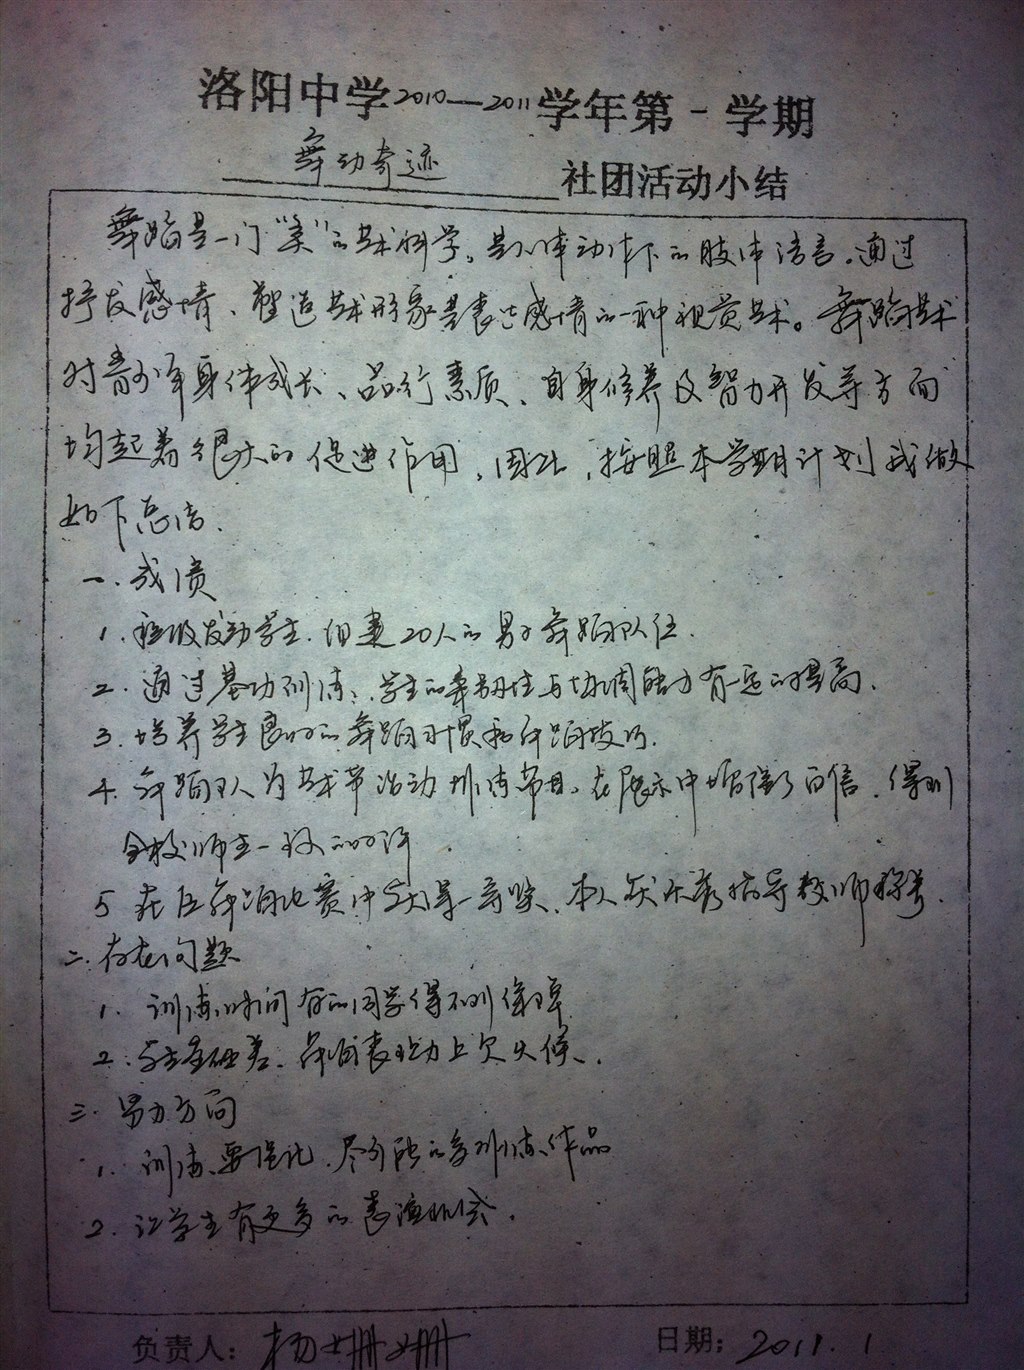 洛阳中学2010—2011学年第一学期
舞动奇迹 社团活动小结
舞蹈是一门“美”的艺术科学。是人体动作下的肢体语言。通过
抒发感情、塑造艺术形象若表达感情的一种视觉艺术。舞蹈艺术
对青少年身体成长、品行素质、自身修养及智力开发等方面
均起着很大的促进作用，因此，按照本学期计划我做
如下总结.
一.成绩
1.积极发动学生.组建20人的男子舞蹈队伍.
2.通过基功训练，学生的柔韧性与协调能力有一定的提高.
3.培养学生良好的舞蹈习惯和舞蹈技巧.
4.舞蹈队为艺术节活动排练节目。在展示中增强了自信.得到
全校师生一致的好评.
5 在区舞蹈比赛中获得一等奖、本人获优秀指导教师称号.
二.存在问题
1. 训练时间有的同学得不到保障
2.学生基础差.舞蹈表现力上欠火候.
三.努力方向
1. 训练要强化.尽可能的多训练作品
2.让学生有更多的表演机会.
负责人：杨姗姗 日期：2011.1